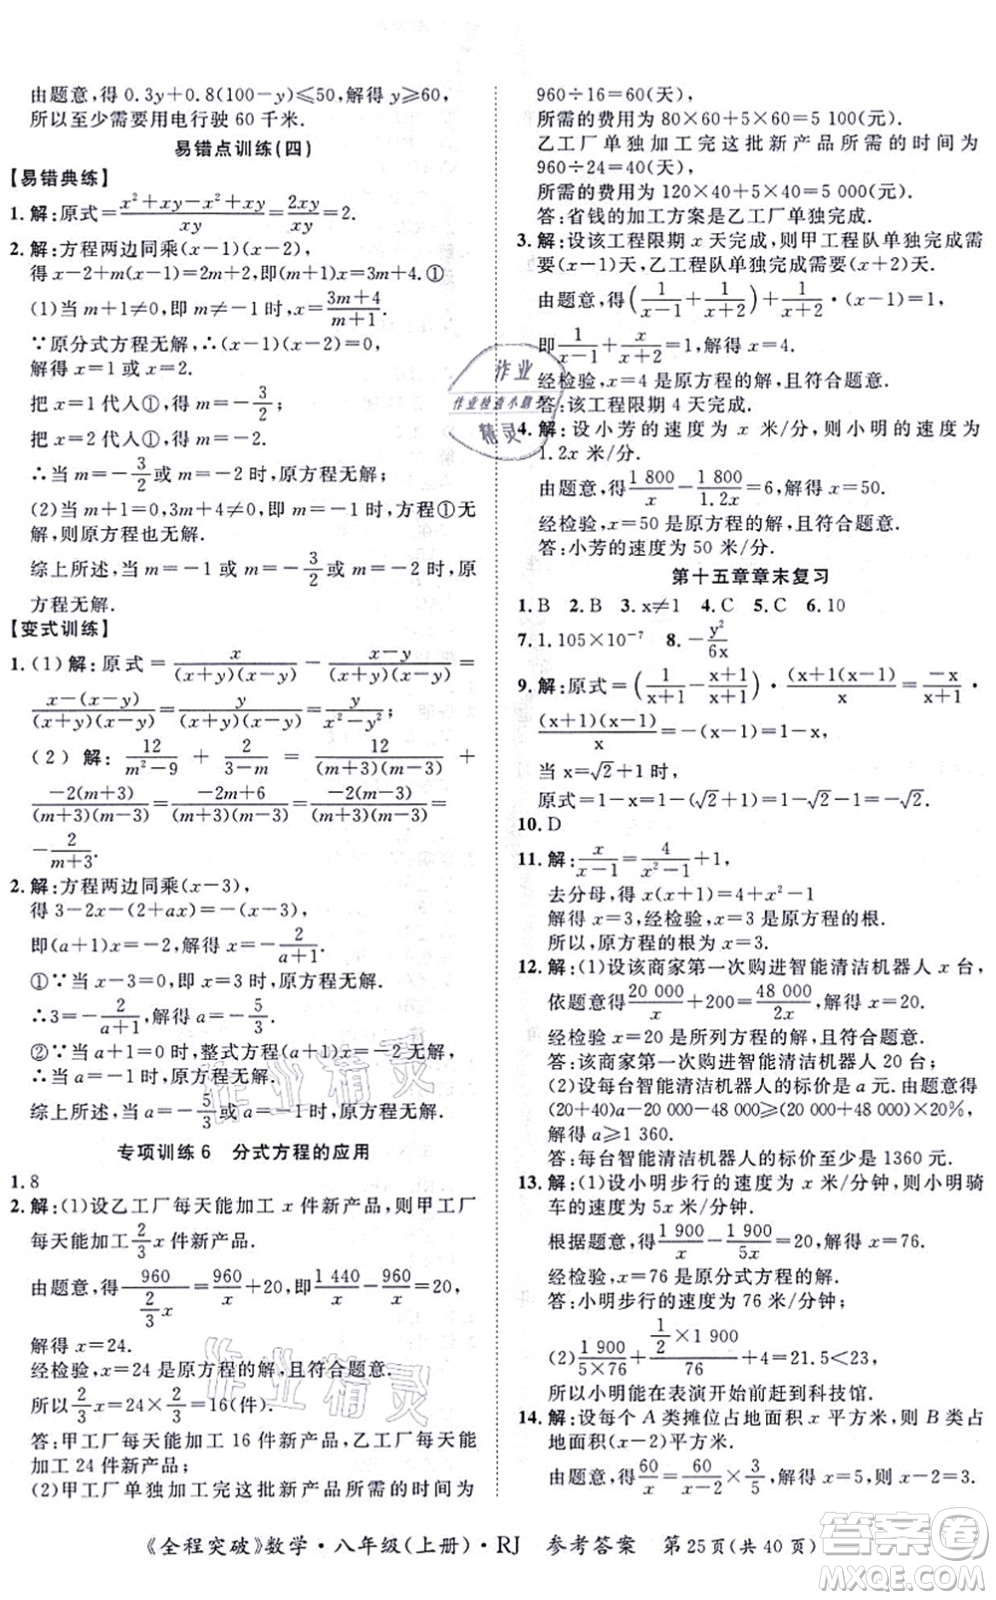 由题意,得 0.3y+0.8(100-y)≤50,解得 y≥60,
所以至少需要用电行驶 60 千米.
易错点训练(四)
【易错典练】
1. 解:原式=\frac{x²+xy-x²+xy}{xy}=\frac{2xy}{xy}=2.
2. 解:方程两边同乘(x-1)(x-2),
得 x-2+m(x-1)=6+m,即(m+1)x=3m+4.①
(1)当 m+1≠0,即 m≠-1 时,x=\frac{3m+4}{m+1}.
∵原分式方程无解,∴(x-1)(x-2)=0,
解得 x=1 或 x=2.
把 x=1 代人①,得 m=-\frac{3}{2};
把 x=2 代入①,得 m=-2.
∴当 m=-\frac{3}{2}或 m=-2 时,原方程无解;
(2)当 m+1=0,即 m=-1 时,方程①无
解,则原方程也无解.
综上所述,当 m=-1 或 m=-\frac{3}{2}或 m=-2 时,原
方程无解.
【变式训练】
1. (1)解:原式=\frac{x}{(x+y)(x-y)}-\frac{x-y}{(x+y)(x-y)}=
\frac{x-(x-y)}{(x+y)(x-y)}=\frac{y}{(x+y)(x-y)}=\frac{y}{x²-y²};
(2)解:\frac{12}{m²-9}+\frac{2}{3-m}=\frac{12}{(m+3)(m-3)}+
\frac{-2(m+3)}{(m+3)(m-3)}=\frac{-2m+6}{(m+3)(m-3)}=\frac{-2(m-3)}{(m+3)(m-3)}=
-\frac{2}{m+3}.
2. 解:方程两边同乘(x-3),
得 3-2x-(2+ax)=3-x,
即(a+1)x=-2,解得 x=-\frac{2}{a+1}.
①∵当 x-3=0,即 x=3 时,原方程无解,
∴3=-\frac{2}{a+1},即 a=-\frac{5}{3}.
②∵当 a+1=0 时,整式方程(a+1)x=-2 无解,
∴当 a=-1 时,原方程无解.
综上所述,当 a=-\frac{5}{3}或 a=-1 时,原方程无解.
专项训练 6 分式方程的应用
1. 8
2. 解:(1)设乙工厂每天能加工 x 件新产品,则甲工厂
每天能加工\frac{2}{3}x 件新产品.
由题意,得\frac{960}{\frac{2}{3}x}=\frac{960}{x}+20,即\frac{1 440}{x}-\frac{960}{x}=20,
解得 x=24.
经检验,x=24 是原方程的解,且符合题意.
所以\frac{2}{3}x=24×\frac{2}{3}=16(件).
答:甲工厂每天能加工 16 件新产品,乙工厂每天能
加工 24 件新产品;
(2)甲工厂单独加工完这批新产品所需的时间为
960÷16=60(天),
所需的费用为 80×60+5×60=5 100(元).
乙工厂单独加工完这批新产品所需的时间为
960÷24=40(天),
所需的费用为 120×40+5×40=5 000(元).
答:省钱的加工方案是乙工厂单独完成.
3. 解:设该工程限期 x 天完成,则甲工程队单独完成需
要(x-1)天,乙工程队单独完成需要(x+2)天.
由题意,得(\frac{1}{x-1}+\frac{1}{x+2})·(x-1)=1,
即\frac{1}{x-1}+\frac{x}{x+2}=1,解得 x=4.
经检验,x=4 是原方程的解,且符合题意.
答:该工程限期 4 天完成.
4. 解:设小芳的速度为 x 米/分,则小明的速度为
1.2x 米/分.
由题意,得\frac{1 800}{x}-\frac{1 800}{1.2x}=6,解得 x=50.
经检验,x=50 是原方程的解,且符合题意.
答:小芳的速度为 50 米/分.
第十五章章末复习
1. B 2. B 3. x≠1 4. C 5. C 6. 10
7. 1.105×10⁻⁷ 8. -\frac{y²}{6x}
9. 解:原式=(\frac{1}{x+1}-\frac{x+1}{x+1})·\frac{(x+1)(x-1)}{x}=\frac{-x}{x+1}·
\frac{(x+1)(x-1)}{x}=-(x-1)=1-x,
当 x=√2+1 时,
原式=1-x=1-(√2+1)=1-√2-1=-√2.
10. D
11. 解:\frac{x}{x-1}=\frac{4}{x²-1}+1,
去分母,得 x(x+1)=4+x²-1
解得 x=3,经检验,x=3 是原方程的根.
所以,原方程的根为 x=3.
12. 解:(1)设该商家第一次购进智能清洁机器人 x 台,
依题意得\frac{20 000}{x}+200=\frac{48 000}{2x},解得 x=20.
经检验,x=20 是所列方程的解,且符合题意.
答:该商家第一次购进智能清洁机器人 20 台;
(2)设每台智能清洁机器人的标价是 a 元.由题意得
(20+40)a-20 000-48 000≥(20 000+48 000)×20%,
解得 a≥1 360.
答:每台智能清洁机器人的标价至少是 1360 元.
13. 解:(1)设小明步行的速度是 x 米/分钟,则小明骑
车的速度是 5x 米/分钟.
根据题意,得\frac{1 900}{x}-\frac{1 900}{5x}=20,解得 x=76.
经检验,x=76 是原分式方程的解.
答:小明步行的速度是 76 米/分钟;
(2)\frac{1 900}{5×76}+\frac{\frac{1}{2}×1 900}{76}+4=21.5<23,
所以小明能在表演开始前赶到科技馆.
14. 解:设每个 A 类摊位占地面积 x 平方米,则 B 类占
地面积(x-2)平方米.
由题意得\frac{60}{x}=\frac{60}{x-2}×\frac{3}{5},解得 x=5,则 x-2=3.
《全程突破》数学·八年级(上册)·RJ 参考答案 第25页(共 40 页)
作业
作业检查小助手
精灵
作业精灵
作业精灵
MXQE.COM